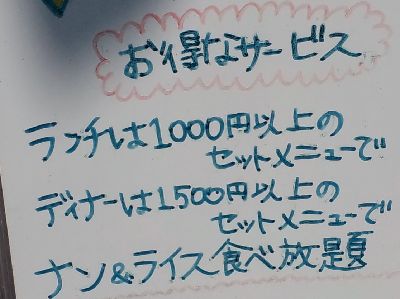 お得なサービス
ランチは1000円以上の
セットメニューで
ディナーは1500円以上の
セットメニューで
ナン&ライス食べ放題